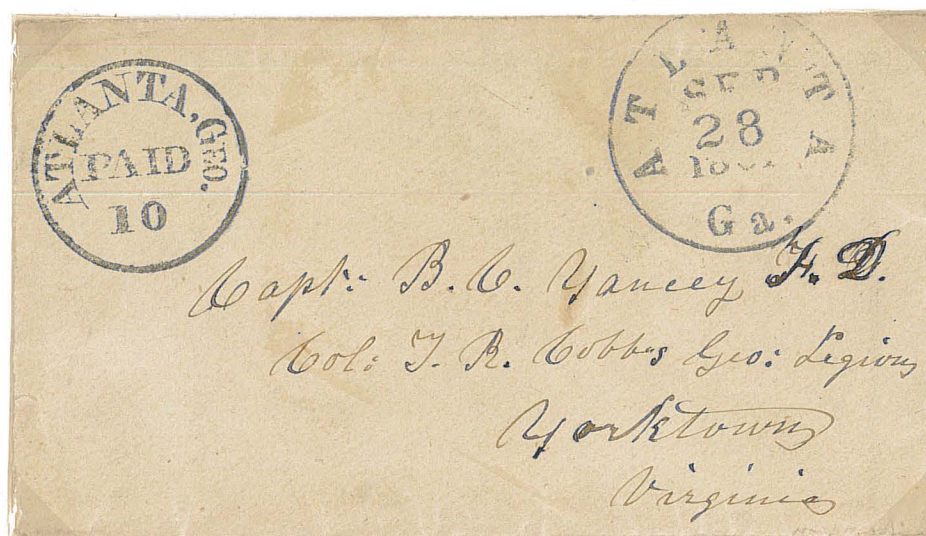 ATLANTA, GEO.
PAID
10
ATLANTA
SEP
28
Ga.
Capt: B. C. Yancey F. D.
Col: T. R. Cobb's Geo: Legion
Yorktown
Virginia